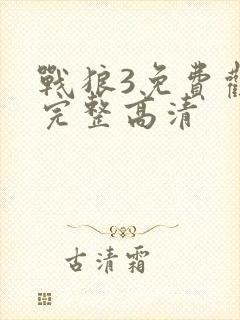 戰狼3免費觀
完整高清
古清霜